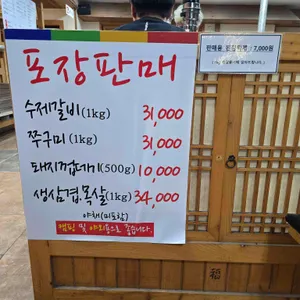 포장판매
수제갈비(1kg) 31,000
쭈구미(1kg) 31,000
돼지껍데기(500g) 10,000
생삼겹,목살(1kg) 34,000
야채(미포함)
캠핑 및 야외용으로 좋습니다.
판매용 : 7,000원